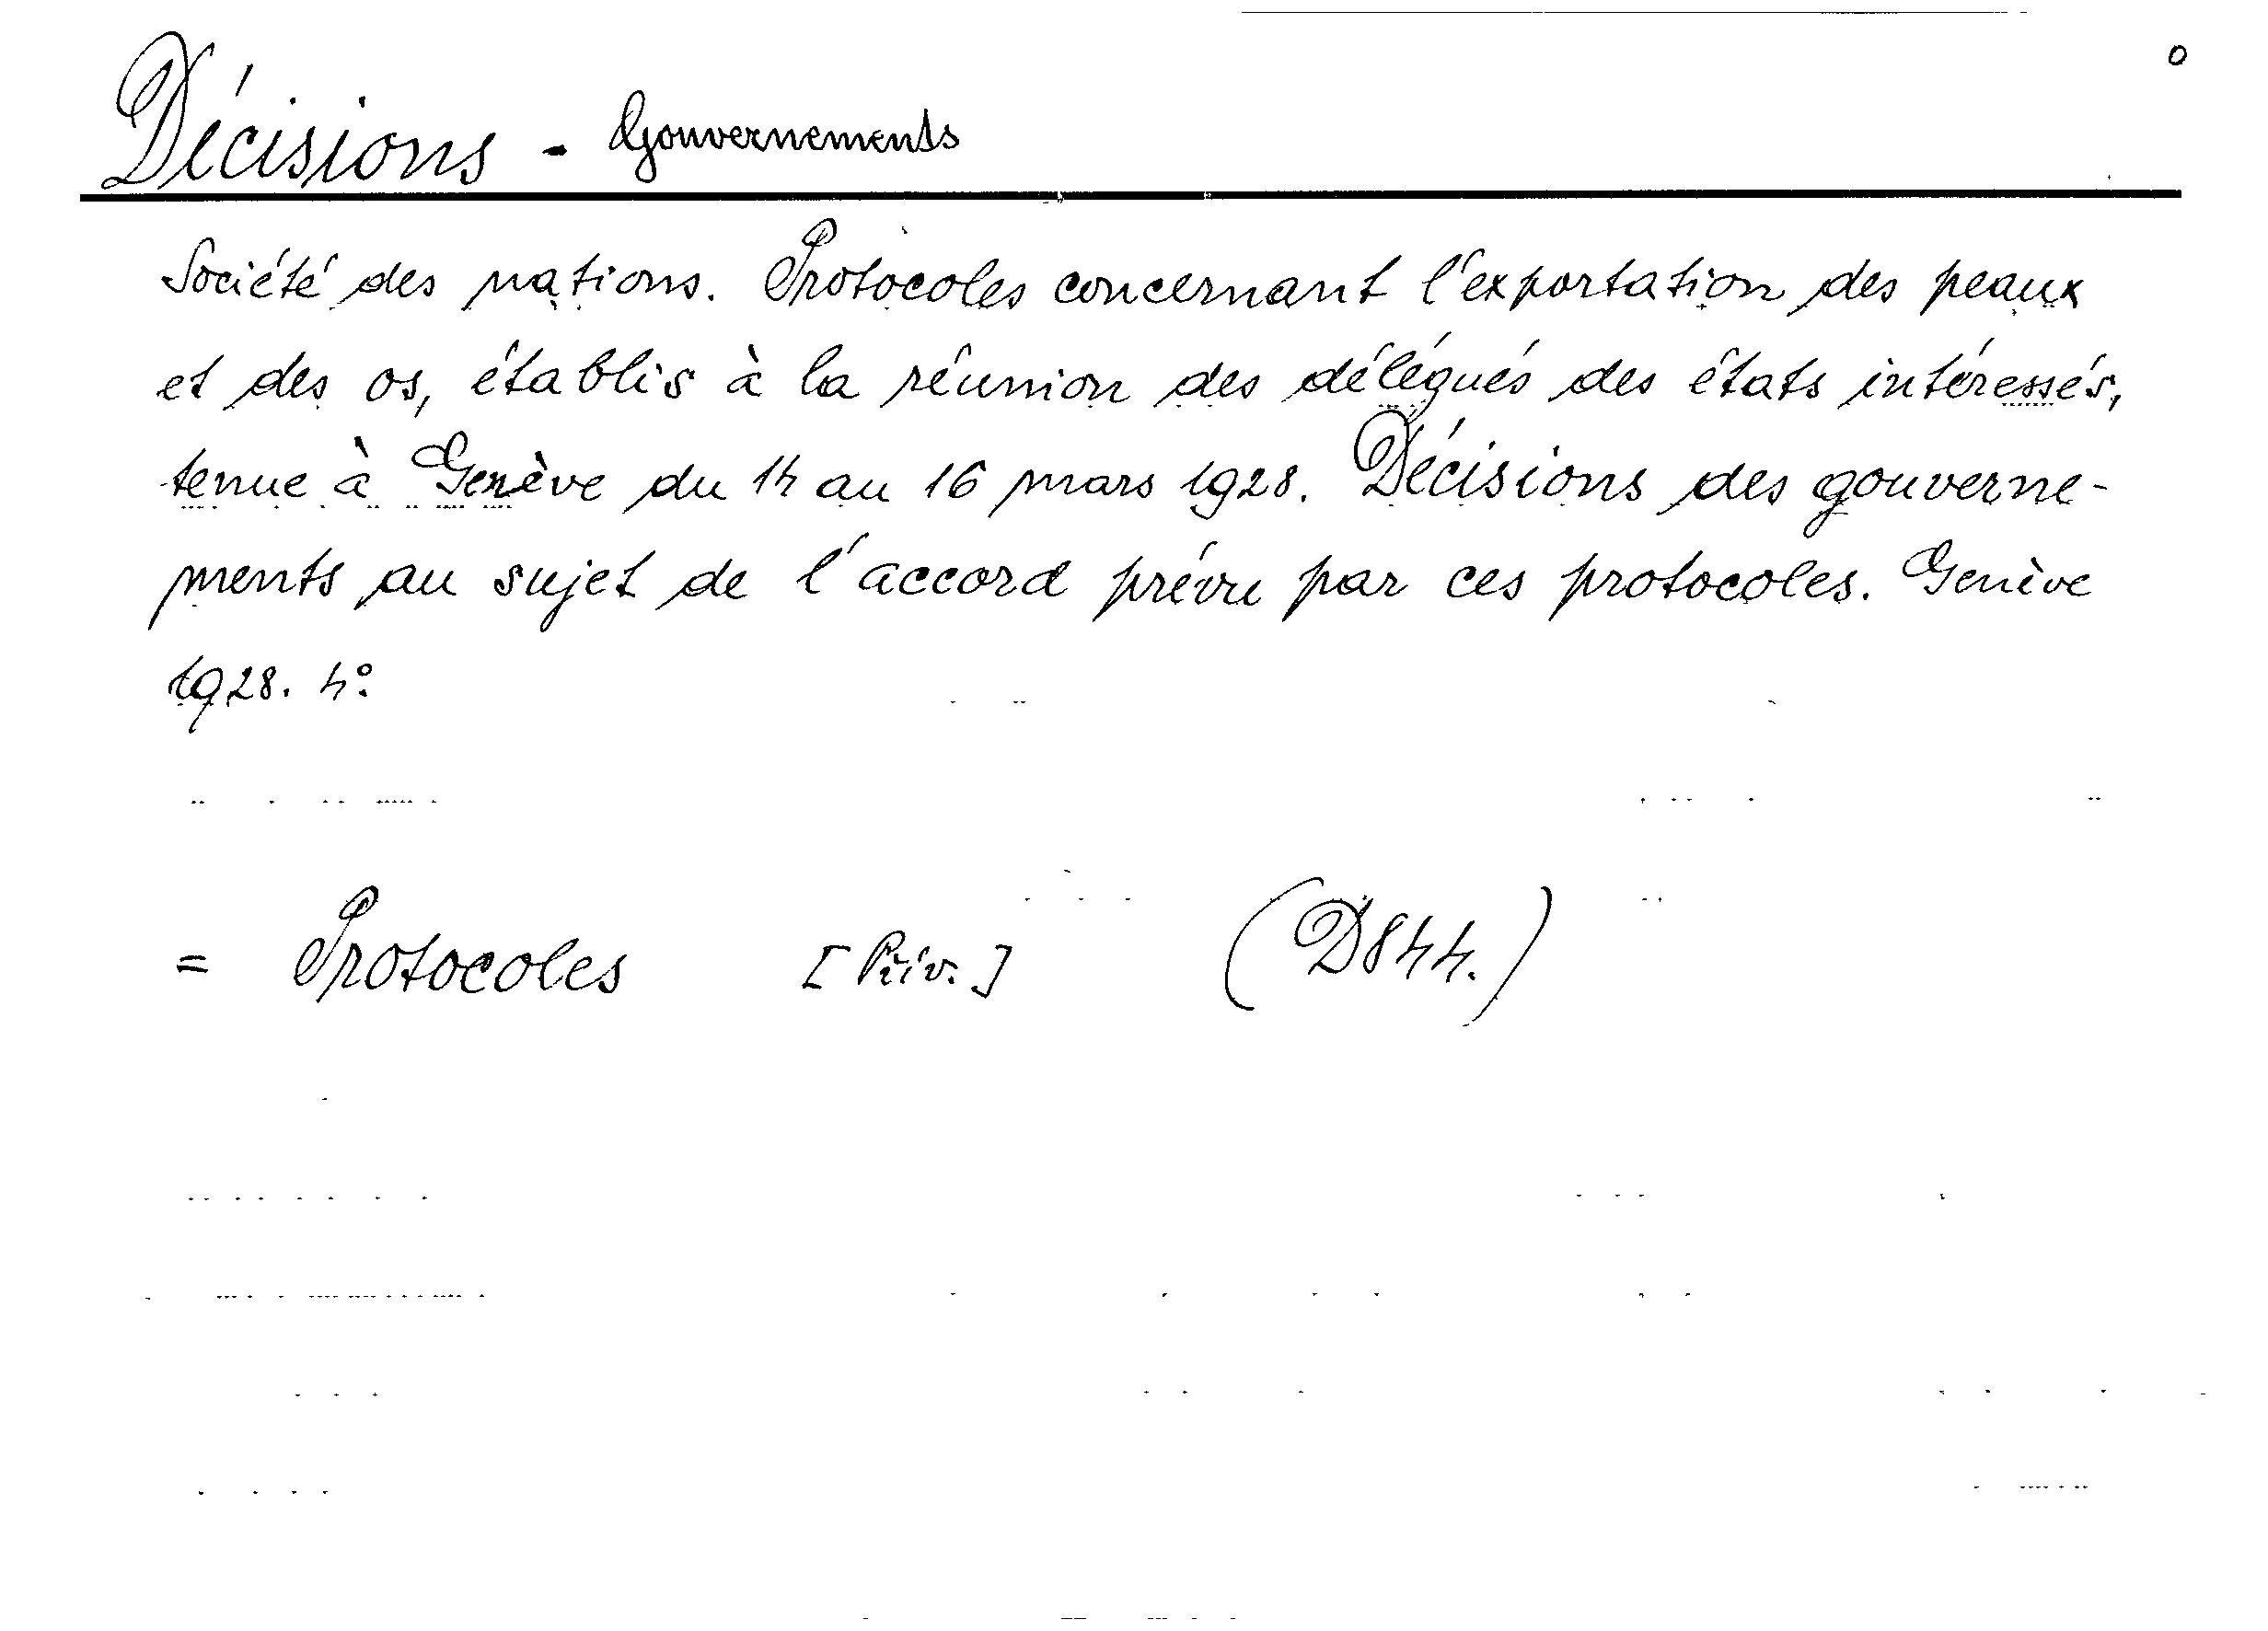 o
Décisions - Gouvernements
Société des nations. Protocoles concernant l'exportation des peaux
et des os, établis à la réunion des délégués des états intéressés,
tenue à Genève du 14 au 16 mars 1928. Décisions des gouverne-
ments au sujet de l'accord prévu par ces protocoles. Genève
1928. 4º.
= Protocoles [Priv.] (D844.)